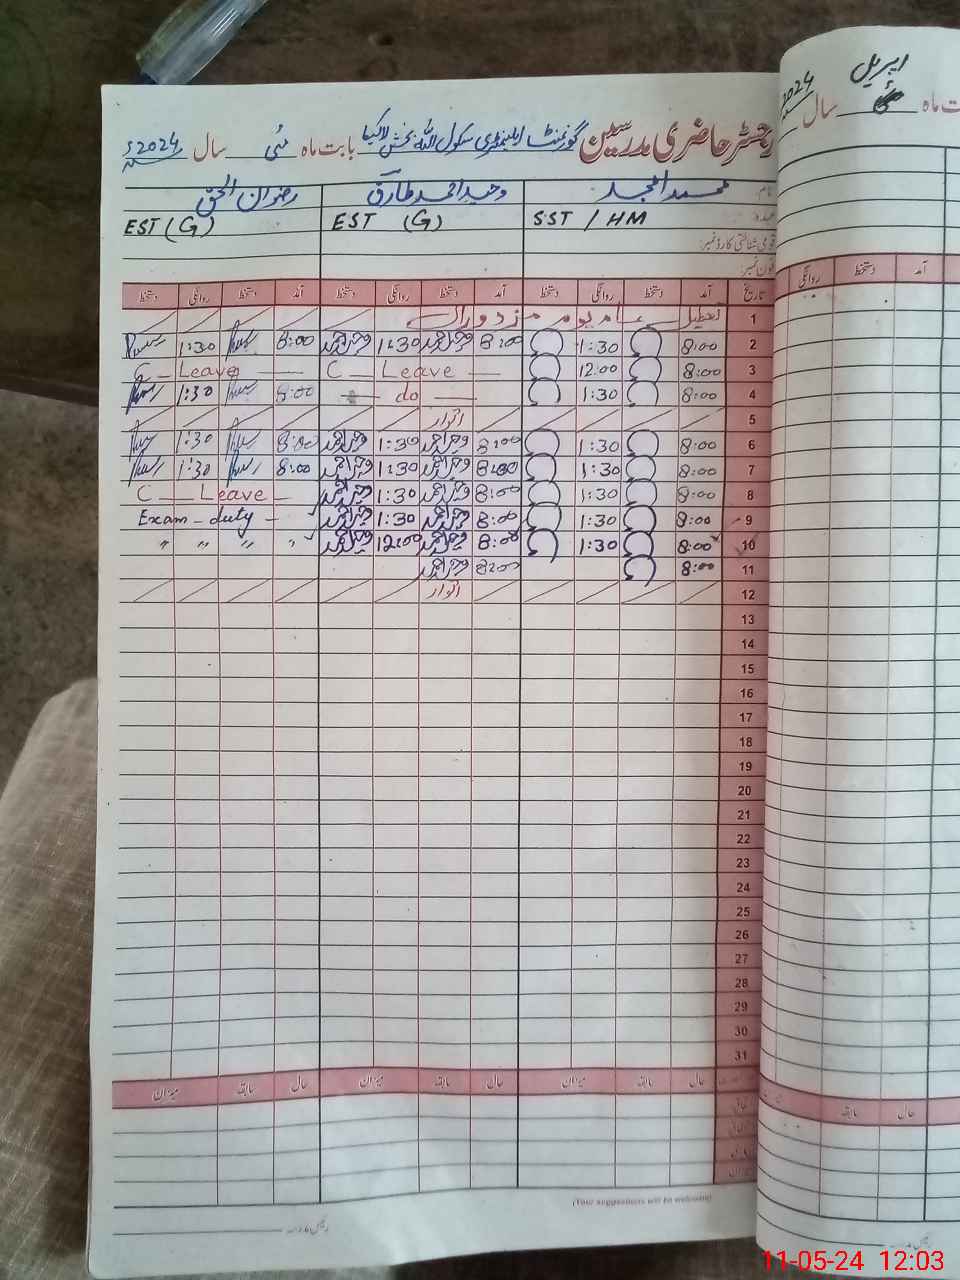 رجسٹر حاضری مدرسین گورنمنٹ ایلیمنٹری سکول اللہ بخش لاکیا بابت ماہ مئی سال 2024ء
نام وحید احمد طارق رضوان الحق
عہدہ SST / HM EST (G) EST (G)
قومی شناختی کارڈ نمبر:
فون نمبر:
تاریخ آمد دستخط روانگی دستخط آمد دستخط روانگی دستخط آمد دستخط روانگی دستخط
1 تعطیل یوم مزدوراں
2 8:00 1:30 8:00 1:30 8:00 1:30
3 8:00 12:00 C - Leave C - Leave
4 8:00 1:30 do 8:00 1:30
5 اتوار
6 8:00 1:30 8:00 1:30 8:00 1:30
7 8:00 1:30 8:00 1:30 8:00 1:30
8 8:00 1:30 8:00 1:30 C - Leave
9 8:00 1:30 8:00 1:30 Exam - duty -
10 8:00 1:30 8:00 12:00 " " " "
11 8:00 8:00
12 اتوار
13
14
15
16
17
18
19
20
21
22
23
24
25
26
27
28
29
30
31
حال سابقہ میزان حال سابقہ میزان حال سابقہ میزان
(Your suggestions will be welcoming)
ماہ اپریل سال 2024
آمد دستخط روانگی
حال سابقہ
11-05-24 12:03